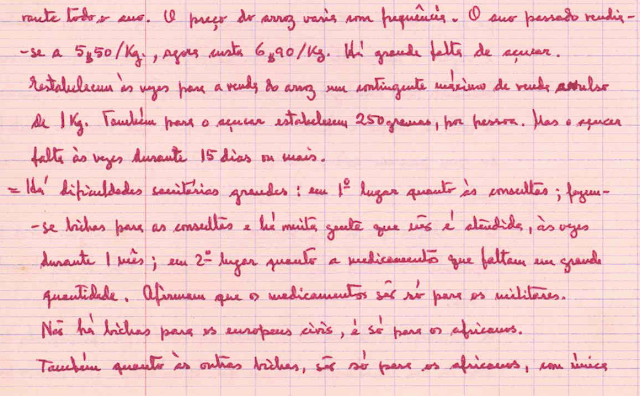 rante todo o ano. O preço do arroz varia com frequência. O ano passado vendia-
-se a 5$50/Kg., agora custa 6$90/Kg. Há grande falta de açucar.
Estabelecem às vezes para a venda do arroz um contingente máximo de venda avulso
de 1 Kg. Também para o açucar estabelecem 250 gramas, por pessoa. Mas o açucar
falta às vezes durante 15 dias ou mais.
= Há dificuldades sanitárias grandes: em 1º lugar quanto às consultas; fazem-
-se bichas para as consultas e há muita gente que não é atendida, às vezes
durante 1 mês; em 2º lugar quanto a medicamentos que faltam em grande
quantidade. Afirmam que os medicamentos são só para os militares.
Não há bichas para os europeus civis, é só para os africanos.
Também quanto às outras bichas, são só para os africanos, com única